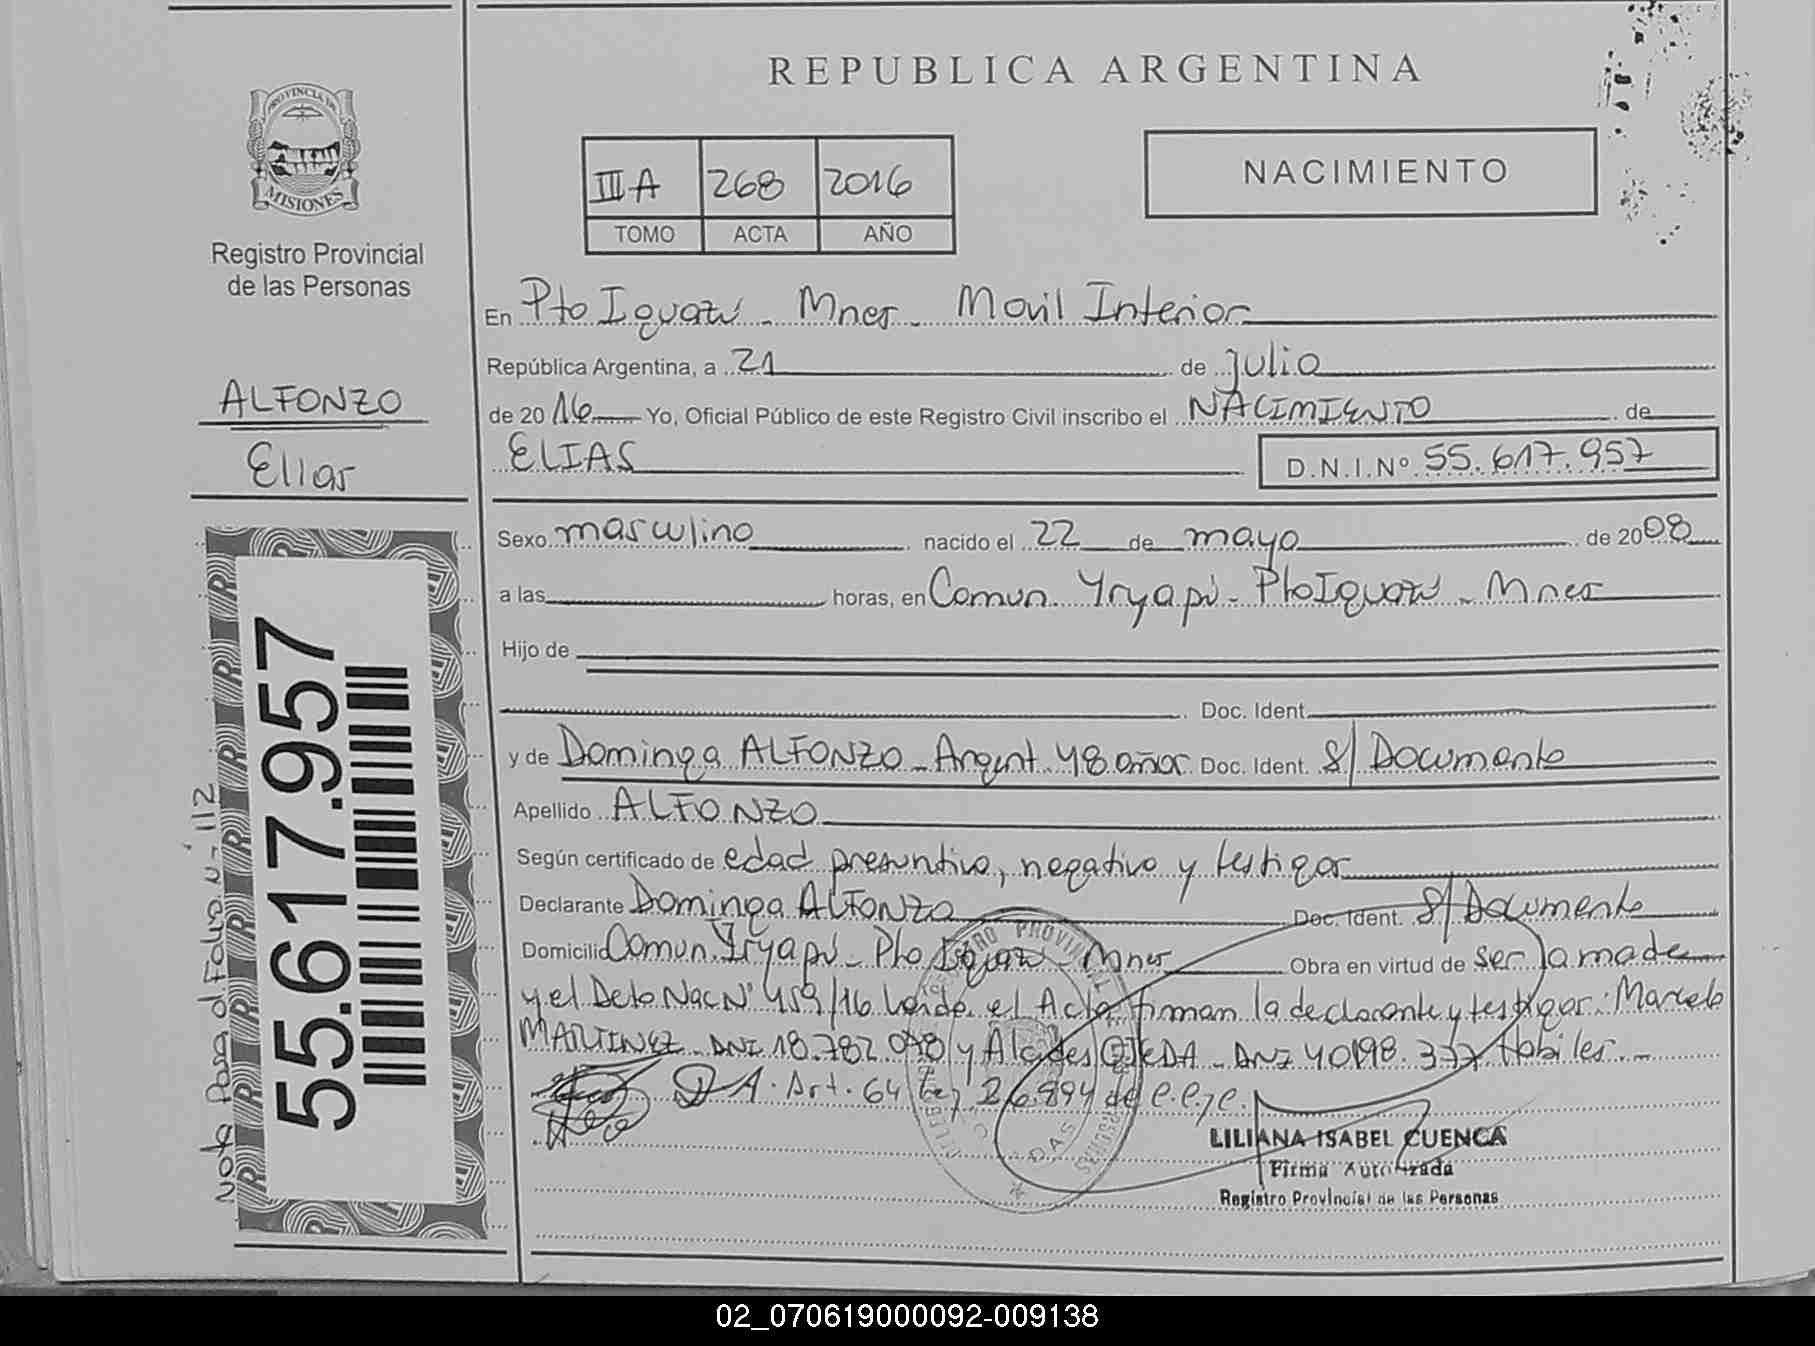 REPUBLICA ARGENTINA
PROVINCIA DE
MISIONES
Registro Provincial
de las Personas
III A 268 2016
TOMO ACTA AÑO
NACIMIENTO
En Pto Iguazú - Mnes - Movil Interior
República Argentina, a 21 de julio
ALFONZO
de 2016 Yo, Oficial Público de este Registro Civil inscribo el NACIMIENTO de
Elias
ELIAS D.N.I.Nº 55.617.957
Sexo masculino nacido el 22 de mayo de 2008
a las horas, en Comun. Yryapú - Pto Iguazú - Mnes
Hijo de
Doc. Ident.
y de Dominga ALFONZO - Argent. 48 años Doc. Ident. S/ Documento
Apellido ALFONZO
Según certificado de edad presuntiva, negativo y testigos
Declarante Dominga ALFONZO Doc. Ident. S/ Documento
Domicilio Comun. Yryapú - Pto Iguazú - Mnes Obra en virtud de ser la madre
y el Dcto Nac Nº 459/16 Leída el Acta firman la declarante y testigos: Marcelo
MARTINEZ - DNI 18.782.098 y Alcides OJEDA - DNI 40198.377 Habiles.-
Art. 64 Ley 26.994 de
LILIANA ISABEL CUENCA
Firma Autorizada
Registro Provincial de las Personas
55.617.957
Nota Pasa al Folio Nº 112
02_070619000092-009138